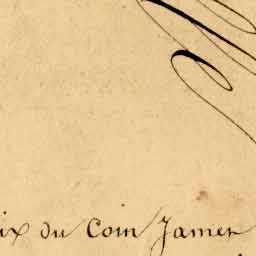 ix du Coin Jamet